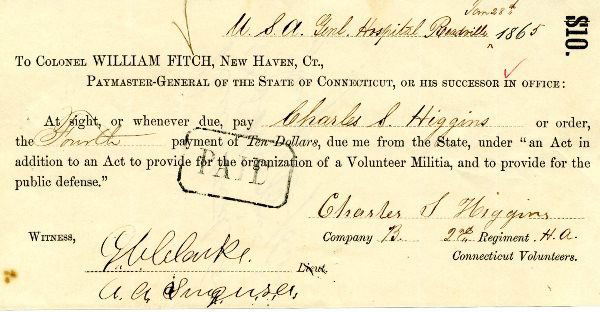 Jan 28th
U. S. A. Genl. Hospital Readville 1865
$10.
To Colonel WILLIAM FITCH, New Haven, Ct.,
Paymaster-General of the State of Connecticut, or his successor in office:
At sight, or whenever due, pay Charles S. Higgins or order,
the Fourth payment of Ten Dollars, due me from the State, under "an Act in
addition to an Act to provide for the organization of a Volunteer Militia, and to provide for the
public defense."
PAID
Charles S Higgins
Witness, Company B. 2nd Regiment H.A.
Clarke. Lieut. Connecticut Volunteers.
A. A. Surgeon